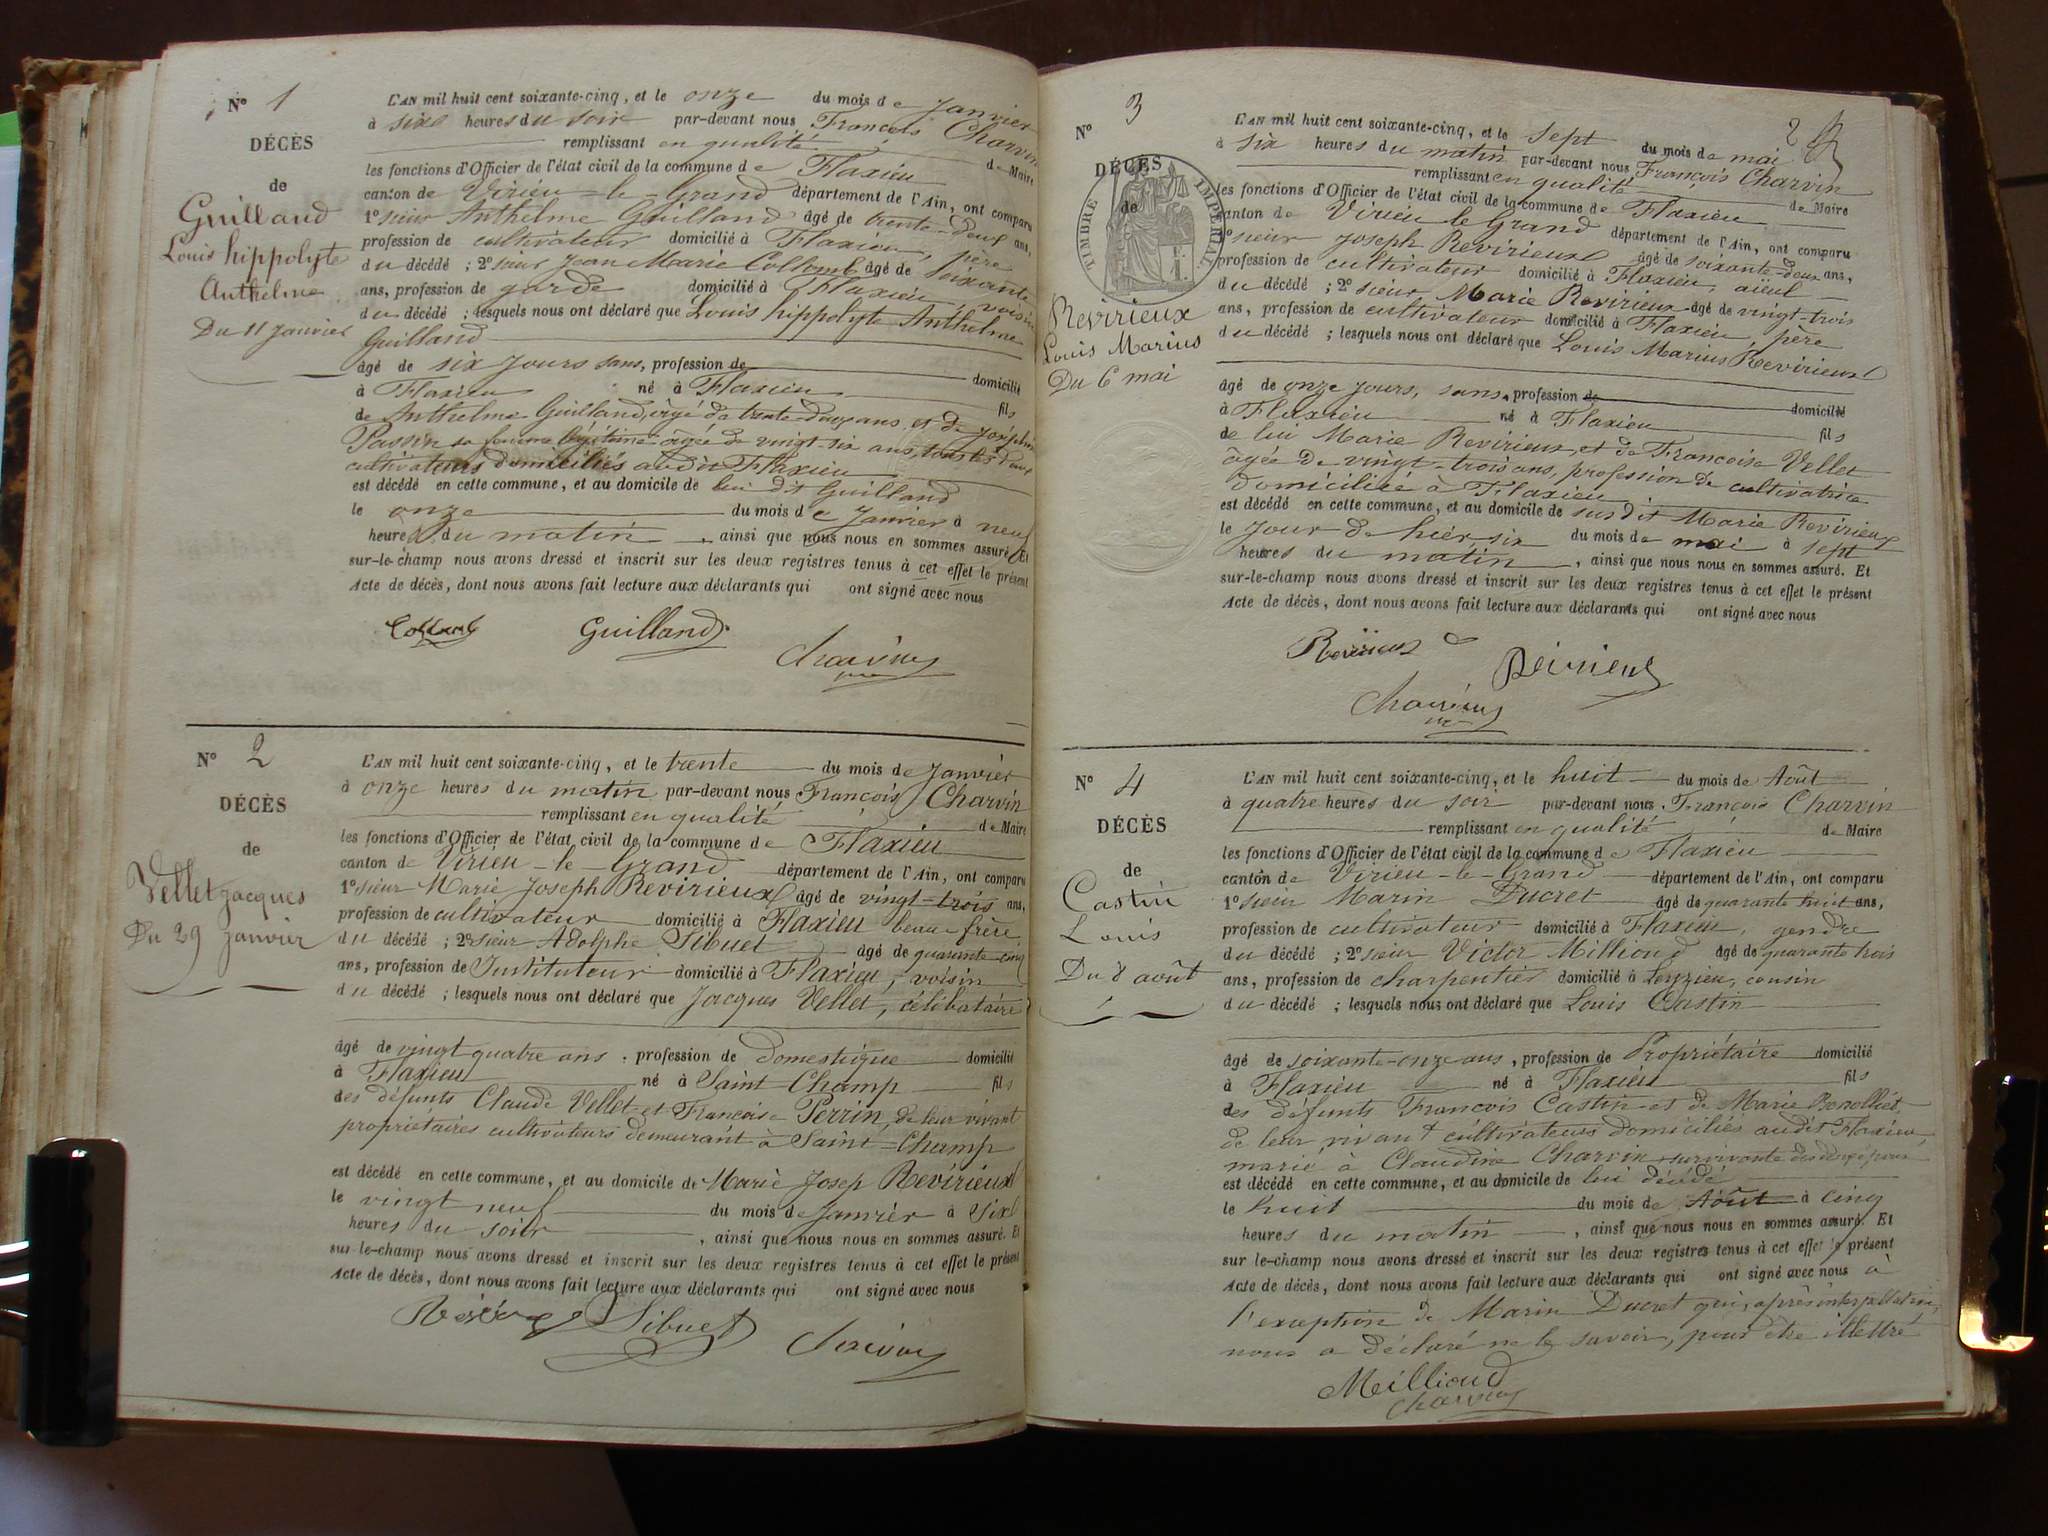 N° 1
DÉCÈS
de
Guilland
Louis hippolyte
Anthelme
Du 11 Janvier
L'AN mil huit cent soixante-cinq, et le onze du mois de Janvier
à six heures du soir par-devant nous François Charvin
remplissant en qualité de Maire
les fonctions d'Officier de l'état civil de la commune de Flaxieu
canton de Virieu-le-Grand département de l'Ain, ont comparu
1° sieur Anthelme Guilland âgé de trente-deux ans,
profession de cultivateur domicilié à Flaxieu, père
du décédé ; 2° sieur Jean Marie Collomb âgé de soixante
ans, profession de garde domicilié à Flaxieu, voisin
du décédé ; lesquels nous ont déclaré que Louis hippolyte Anthelme
Guilland
âgé de six jours sans, profession de domicilié
à Flaxieu né à Flaxieu fils
de Anthelme Guilland, âgé de trente-deux ans et de Joséphine
Passin sa femme légitime âgée de vingt-six ans, tous les deux
cultivateurs domiciliés audit Flaxieu
est décédé en cette commune, et au domicile de lui dit Guilland
le onze du mois de Janvier à neuf
heures du matin, ainsi que nous nous en sommes assuré. Et
sur-le-champ nous avons dressé et inscrit sur les deux registres tenus à cet effet le présent
Acte de décès, dont nous avons fait lecture aux déclarants qui ont signé avec nous
Collomb Guilland
Charvin
N° 2
DÉCÈS
de
Vellet Jacques
Du 29 Janvier
L'AN mil huit cent soixante-cinq, et le trente du mois de Janvier
à onze heures du matin par-devant nous François Charvin
remplissant en qualité de Maire
les fonctions d'Officier de l'état civil de la commune de Flaxieu
canton de Virieu-le-Grand département de l'Ain, ont comparu
1° sieur Marie Joseph Revirieux âgé de vingt-trois ans,
profession de cultivateur domicilié à Flaxieu beau-frère
du décédé ; 2° sieur Adolphe Sibuet âgé de quarante-cinq
ans, profession de Instituteur domicilié à Flaxieu, voisin
du décédé ; lesquels nous ont déclaré que Jacques Vellet, célibataire
âgé de vingt quatre ans, profession de domestique domicilié
à Flaxieu né à Saint-Champ fils
des défunts Claude Vellet et Françoise Perrin, de leur vivant
propriétaires cultivateurs demeurant à Saint-Champ
est décédé en cette commune, et au domicile de Marie Josep Revirieux
le vingt neuf du mois de Janvier à Six
heures du soir, ainsi que nous nous en sommes assuré. Et
sur-le-champ nous avons dressé et inscrit sur les deux registres tenus à cet effet le présent
Acte de décès, dont nous avons fait lecture aux déclarants qui ont signé avec nous
Sibuet Charvin
2
N° 3
DÉCÈS
de
TIMBRE IMPÉRIAL
Revirieux
Louis Marius
Du 6 mai
L'AN mil huit cent soixante-cinq, et le sept du mois de mai
à six heures du matin par-devant nous François Charvin
remplissant en qualité de Maire
les fonctions d'Officier de l'état civil de la commune de Flaxieu
canton de Virieu le Grand département de l'Ain, ont comparu
1° sieur Joseph Revirieux âgé de soixante-deux ans,
profession de cultivateur domicilié à Flaxieu, aïeul
du décédé ; 2° sieur Marie Revirieux âgé de vingt-trois
ans, profession de cultivateur domicilié à Flaxieu, père
du décédé ; lesquels nous ont déclaré que Louis Marius Revirieux
âgé de onze jours, sans profession de domicilié
à Flaxieu né à Flaxieu fils
de lui Marie Revirieux et de Françoise Vellet
âgée de vingt-trois ans, profession de cultivatrice
domiciliée à Flaxieu
est décédé en cette commune, et au domicile de susdit Marie Revirieux
le jour de hier six du mois de mai à sept
heures du matin, ainsi que nous nous en sommes assuré. Et
sur-le-champ nous avons dressé et inscrit sur les deux registres tenus à cet effet le présent
Acte de décès, dont nous avons fait lecture aux déclarants qui ont signé avec nous
Revirieux
Charvin
N° 4
DÉCÈS
de
Castin
Louis
Du 8 août
L'AN mil huit cent soixante-cinq, et le huit du mois de Août
à quatre heures du soir par-devant nous François Charvin
remplissant en qualité de Maire
les fonctions d'Officier de l'état civil de la commune de Flaxieu
canton de Virieu-le-Grand département de l'Ain, ont comparu
1° sieur Marin Ducret âgé de quarante huit ans,
profession de cultivateur domicilié à Flaxieu, gendre
du décédé ; 2° sieur Victor Millioud âgé de quarante trois
ans, profession de charpentier domicilié à Ceyzieu, cousin
du décédé ; lesquels nous ont déclaré que Louis Castin
âgé de soixante-onze ans, profession de Propriétaire domicilié
à Flaxieu né à Flaxieu fils
des défunts François Castin et de Marie
de leur vivant cultivateurs domiciliés audit Flaxieu,
marié à Claudine Charvin survivante
est décédé en cette commune, et au domicile de lui décédé
le huit du mois de Août à cinq
heures du matin, ainsi que nous nous en sommes assuré. Et
sur-le-champ nous avons dressé et inscrit sur les deux registres tenus à cet effet le présent
Acte de décès, dont nous avons fait lecture aux déclarants qui ont signé avec nous à
l'exception de Marin Ducret qui, après interpellation,
nous a déclaré ne le savoir, pour être illettré
Millioud
Charvin